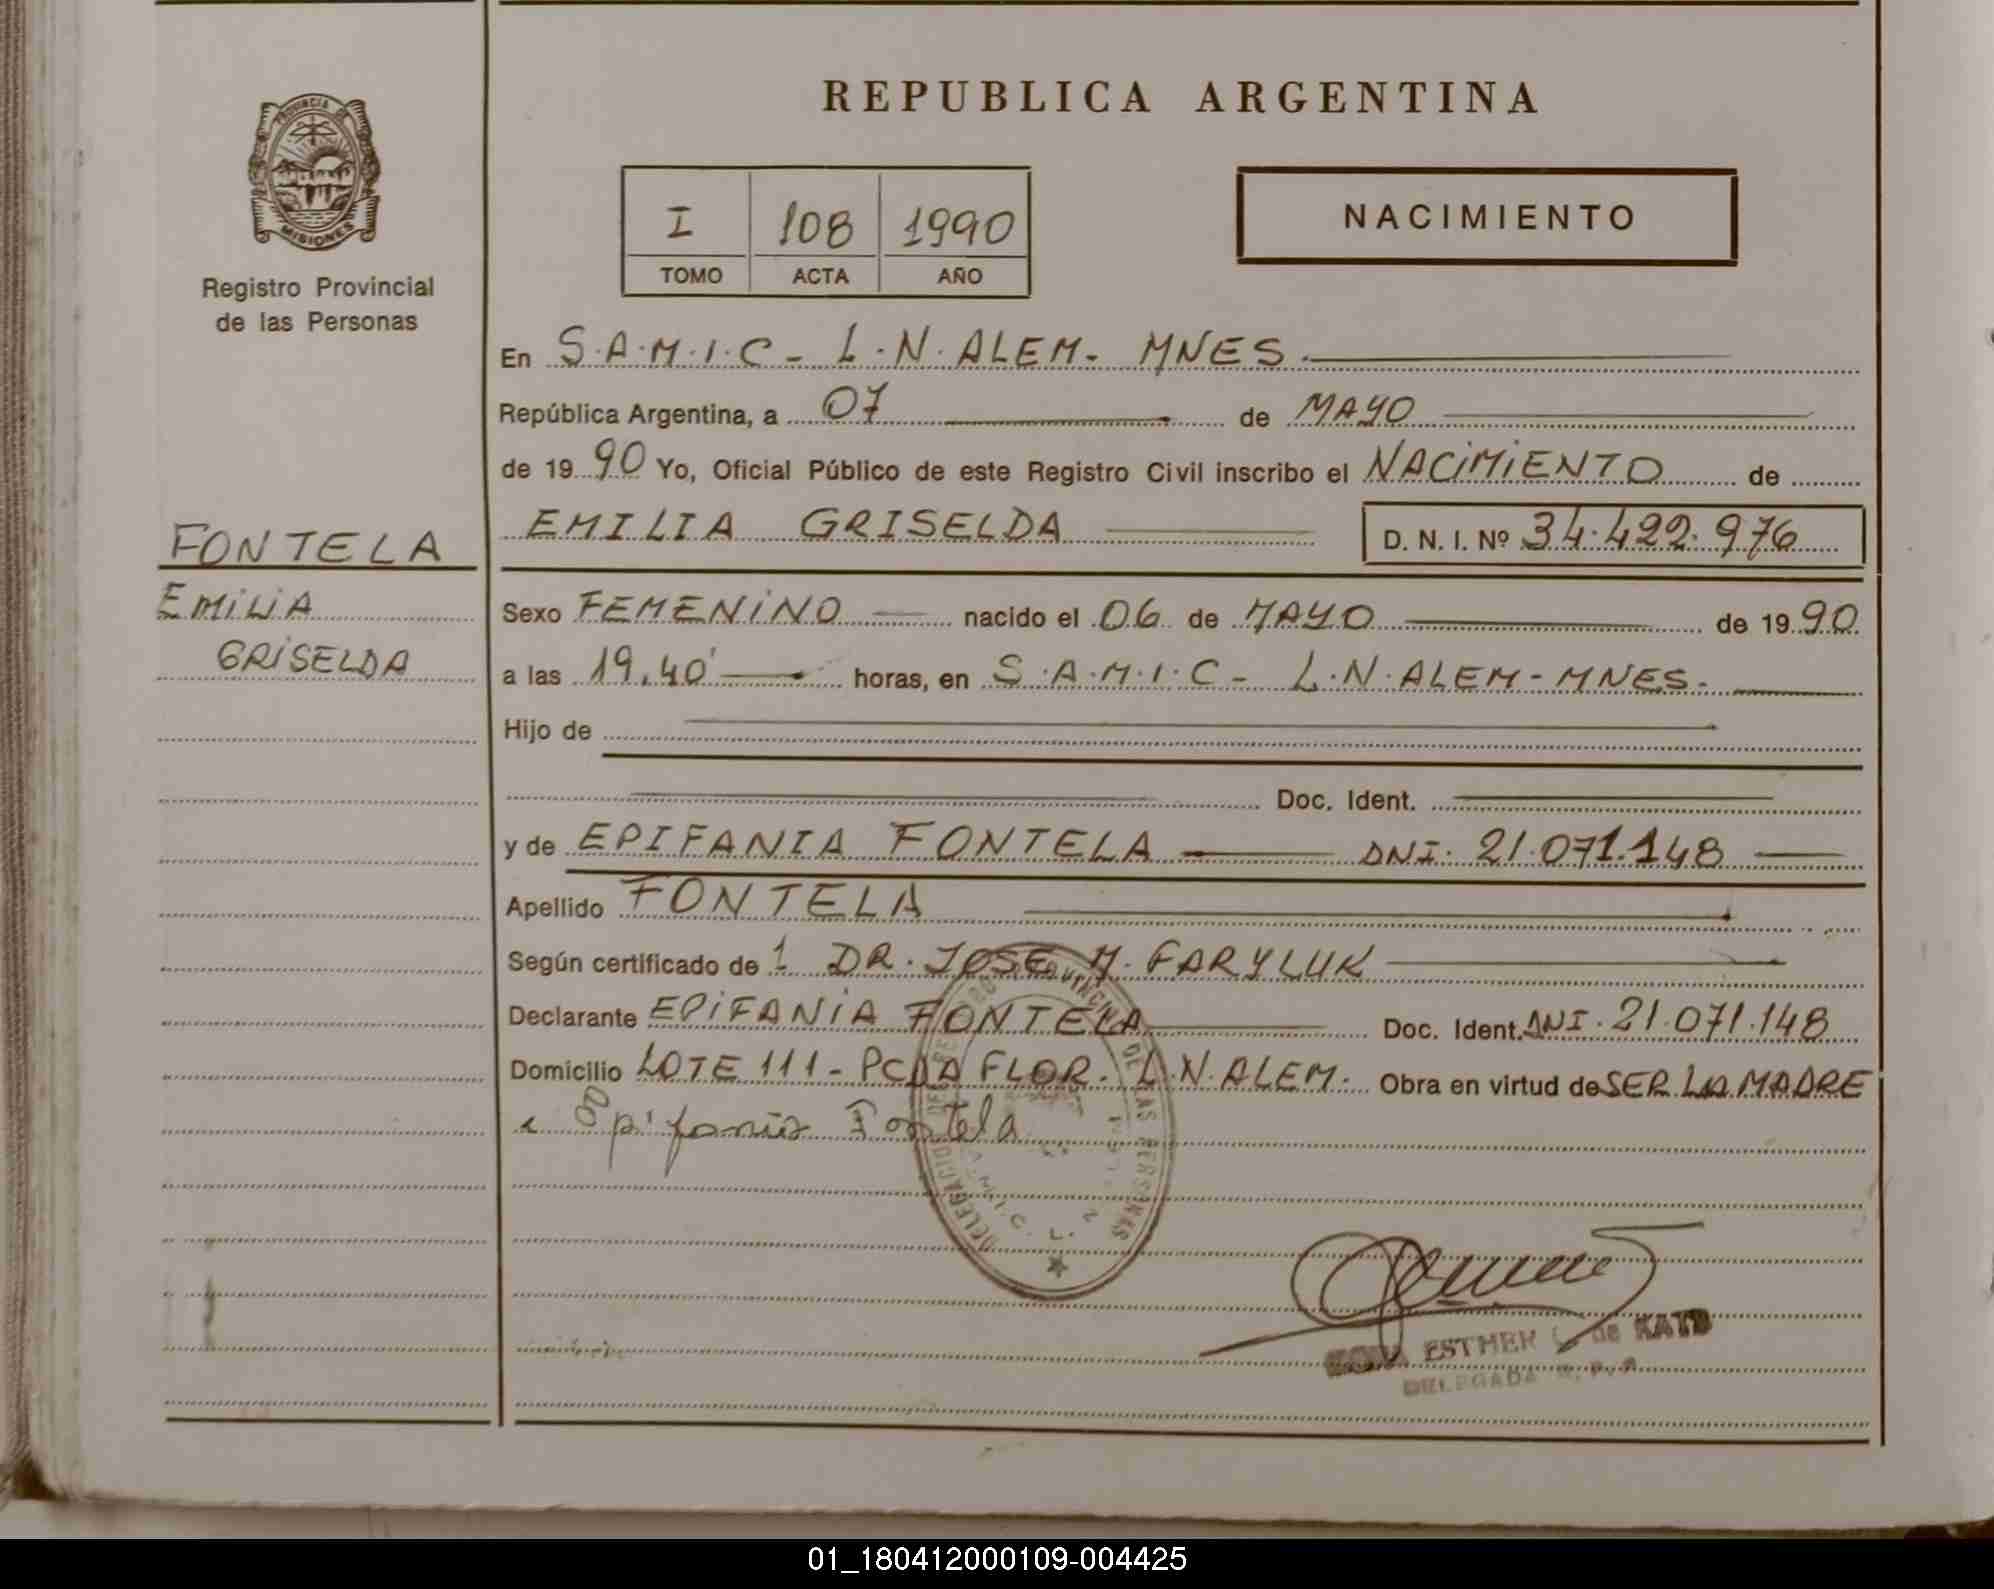 REPUBLICA ARGENTINA
PROVINCIA DE
MISIONES
Registro Provincial
de las Personas
I 108 1990
TOMO ACTA AÑO
NACIMIENTO
En S.A.M.I.C - L.N. ALEM - MNES.
República Argentina, a 07 de MAYO
de 1990 Yo, Oficial Público de este Registro Civil inscribo el NACIMIENTO de
EMILIA GRISELDA D. N. I. Nº 34.422.976
FONTELA
EMILIA
GRISELDA
Sexo FEMENINO nacido el 06 de MAYO de 1990
a las 19,40' horas, en S.A.M.I.C - L.N. ALEM - MNES.
Hijo de
Doc. Ident.
y de EPIFANIA FONTELA DNI. 21.071.148
Apellido FONTELA
Según certificado de 1 DR. JOSE M. FARYLUK
Declarante EPIFANIA FONTELA Doc. Ident. DNI. 21.071.148
Domicilio LOTE 111 - PCDA FLOR. L.N. ALEM. Obra en virtud de SER LA MADRE
Epifania Fontela
DE LAS PERSONAS
ESTHER de KATZ
DELEGADA R.P.P.
01_180412000109-004425